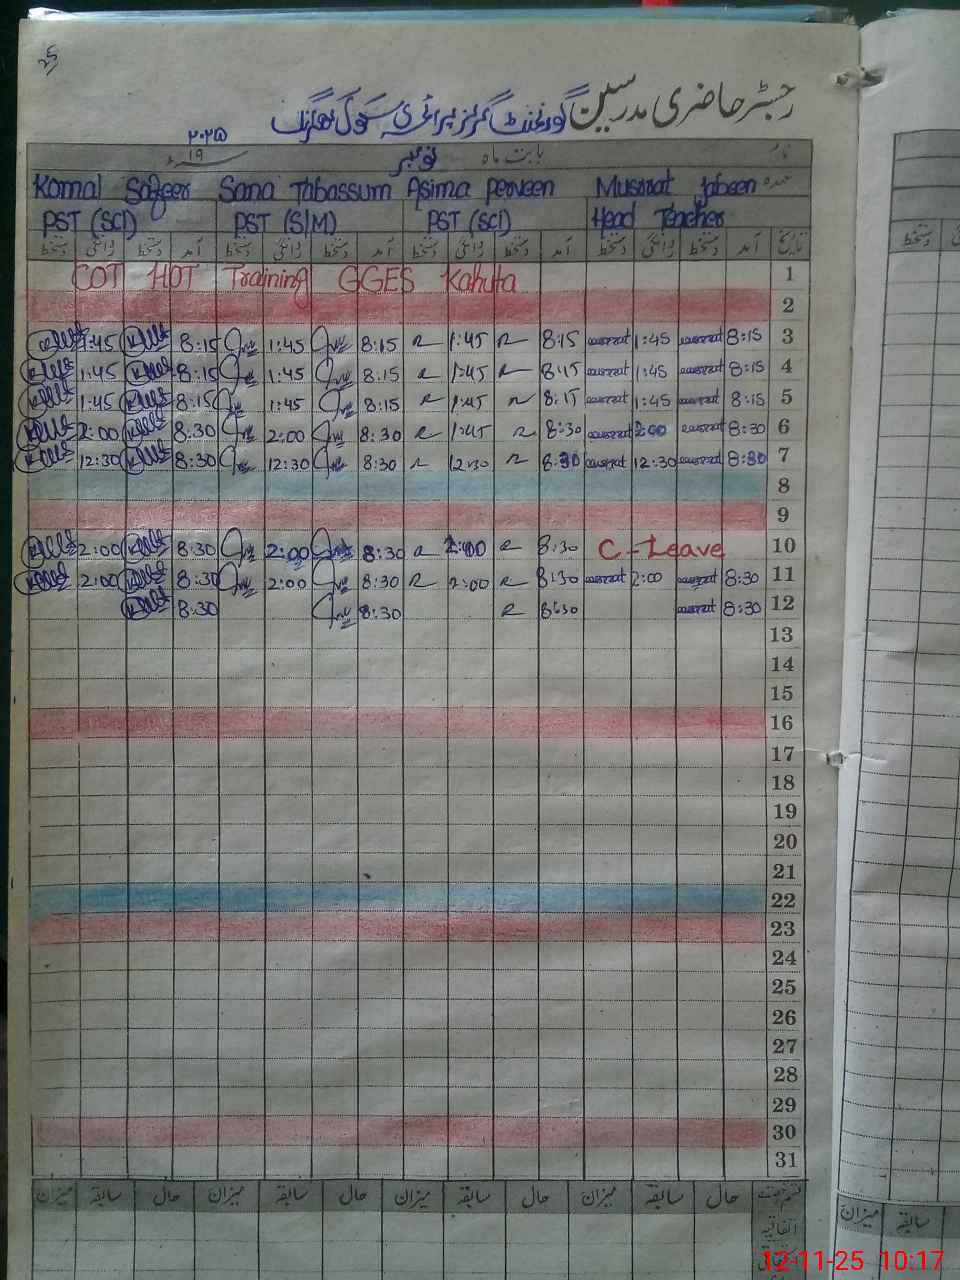 25
رجسٹر حاضری مدرسین گورنمنٹ گرلز پرائمری سکول
۲۰۲۵
بابت ماہ نومبر ۱۹
Komal Sageer Sana Tabassum Asima Perveen Musrrat Jabeen عہدہ
PST (SCI) PST (S/M) PST (SCI) Head Teacher
دستخط روانگی دستخط آمد دستخط روانگی دستخط آمد دستخط روانگی دستخط آمد دستخط روانگی دستخط آمد تاریخ
COT HOT Training GGES Kahuta 1
2
1:45 8:15 1:45 8:15 1:45 8:15 musrrat 1:45 musrrat 8:15 3
1:45 8:15 1:45 8:15 1:45 8:15 musrrat 1:45 musrrat 8:15 4
1:45 8:15 1:45 8:15 1:45 8:15 musrrat 1:45 musrrat 8:15 5
2:00 8:30 2:00 8:30 1:45 8:30 musrrat 2:00 musrrat 8:30 6
12:30 8:30 12:30 8:30 12:30 8:30 musrrat 12:30 musrrat 8:30 7
8
9
2:00 8:30 2:00 8:30 2:00 8:30 C-Leave 10
2:00 8:30 2:00 8:30 2:00 8:30 musrrat 2:00 musrrat 8:30 11
8:30 8:30 8:30 musrrat 8:30 12
13
14
15
16
17
18
19
20
21
22
23
24
25
26
27
28
29
30
31
میزان سابقہ حال میزان سابقہ حال میزان سابقہ حال میزان سابقہ حال
اتفاقیہ
میزان سابقہ
12-11-25 10:17